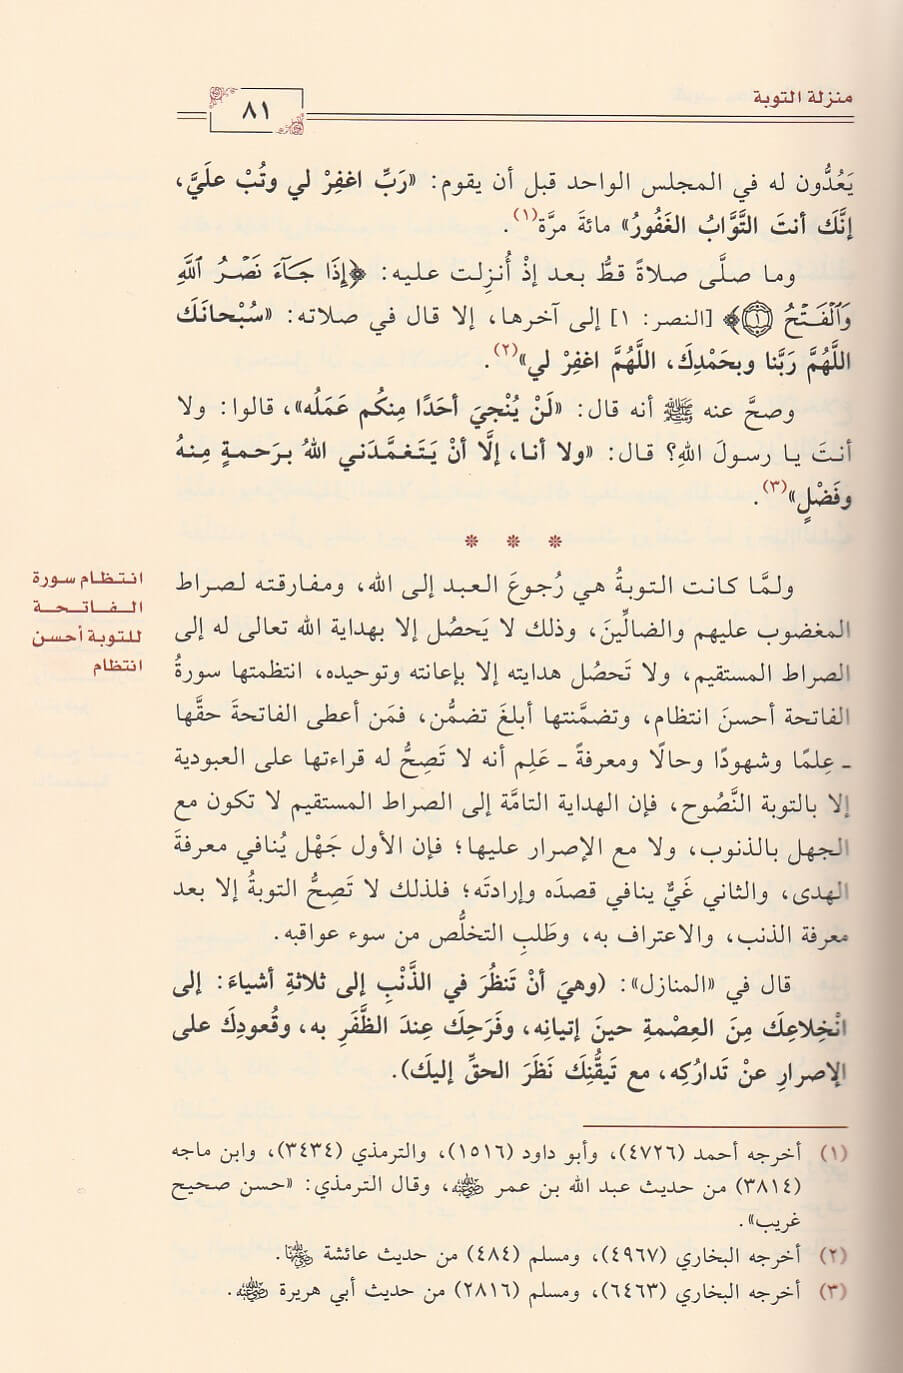 منزلة التوبة
٨١
يَعُدُّون له في المجلس الواحد قبل أن يقوم: «رَبِّ اغفِرْ لي وتُبْ علَيَّ،
إنَّكَ أنتَ التَّوَّابُ الغَفُورُ» مائةَ مرَّة(١).
وما صلَّى صلاةً قطُّ بعد إذْ أُنزِلت عليه: ﴿إِذَا جَآءَ نَصۡرُ ٱللَّهِ
وَٱلۡفَتۡحُ ۝١﴾ [النصر: ١] إلى آخرها، إلا قال في صلاته: «سُبْحانَكَ
اللَّهُمَّ رَبَّنا وبحَمْدِكَ، اللَّهُمَّ اغفِرْ لي»(٢).
وصحَّ عنه ﷺ أنه قال: «لَنْ يُنْجيَ أحَدًا مِنكُم عَمَلُه»، قالوا: ولا
أنتَ يا رسولَ اللهِ؟ قال: «ولا أنا، إلَّا أنْ يَتَغمَّدَني اللهُ برَحمةٍ مِنهُ
وفَضْلٍ»(٣).
* * *
انتظام سورة
الفاتحة
للتوبة أحسن
انتظام
ولمَّا كانت التوبةُ هي رُجوعَ العبد إلى الله، ومفارقته لصراط
المغضوب عليهم والضالِّينَ، وذلك لا يَحصُل إلا بهداية الله تعالى له إلى
الصراط المستقيم، ولا تَحصُل هدايته إلا بإعانته وتوحيده، انتظمتها سورةُ
الفاتحة أحسنَ انتظام، وتضمَّنتها أبلغَ تضمُّن، فمَن أعطى الفاتحةَ حقَّها
ـ عِلمًا وشهودًا وحالًا ومعرفةً ـ عَلِم أنه لا تَصِحُّ له قراءتها على العبودية
إلا بالتوبة النَّصُوح، فإن الهداية التامَّة إلى الصراط المستقيم لا تكون مع
الجهل بالذنوب، ولا مع الإصرار عليها؛ فإن الأول جَهْل يُنافي معرفةَ
الهدى، والثاني غَيٌّ ينافي قصدَه وإرادتَه؛ فلذلك لا تَصِحُّ التوبةُ إلا بعد
معرفة الذنب، والاعتراف به، وطَلبِ التخلُّص من سوء عواقبه.
قال في «المنازل»: (وهيَ أنْ تَنظُرَ في الذَّنْبِ إلى ثلاثةِ أشياءَ: إلى
انْخِلاعِكَ مِنَ العِصْمةِ حينَ إتيانِه، وفَرَحِكَ عِندَ الظَّفَرِ به، وقُعودِكَ على
الإصرارِ عنْ تَدارُكِه، مع تَيقُّنِكَ نَظَرَ الحقِّ إليكَ).
(١) أخرجه أحمد (٤٧٢٦)، وأبو داود (١٥١٦)، والترمذي (٣٤٣٤)، وابن ماجه
(٣٨١٤) من حديث عبد الله بن عمر رضي الله عنهما، وقال الترمذي: «حسن صحيح
غريب».
(٢) أخرجه البخاري (٤٩٦٧)، ومسلم (٤٨٤) من حديث عائشة رضي الله عنها.
(٣) أخرجه البخاري (٦٤٦٣)، ومسلم (٢٨١٦) من حديث أبي هريرة رضي الله عنه.